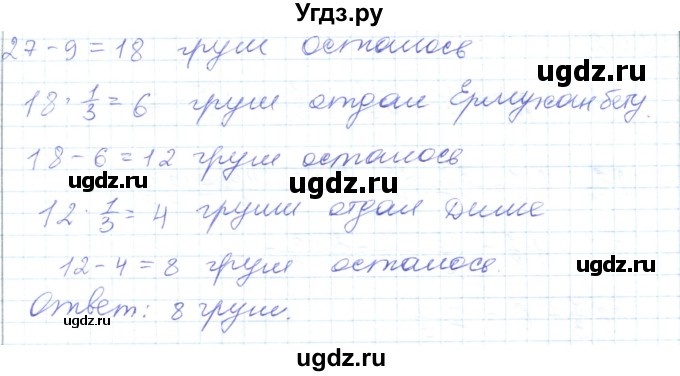 Угдз.ру
27 - 9 = 18 груш осталось
ugdz.ru
18 · 1/3 = 6 груш отдал Ермуханбету.
ugdz.ru
18 - 6 = 12 груш осталось
ugdz.ru
ugdz.ru
12 · 1/3 = 4 груши отдал Диме
ugdz.ru
12 - 4 = 8 груш осталось.
ugdz.ru
Ответ: 8 груш.
ugdz.ru
ugdz.ru
ugdz.ru